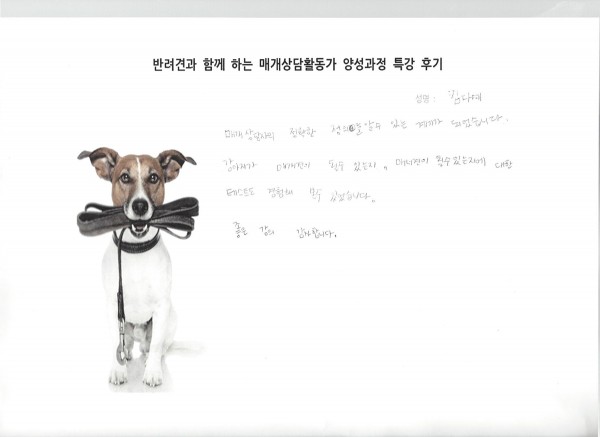 반려견과 함께 하는 매개상담활동가 양성과정 특강 후기
성명 :
매개 상담사의 정확한 정의를 알 수 있는 계기가 되었습니다.
강아지가 매개견이 될수 있는지, 매개견이 될수있는지에 대한
테스트도 경험해 볼수 있었습니다.
좋은 강의 감사합니다.